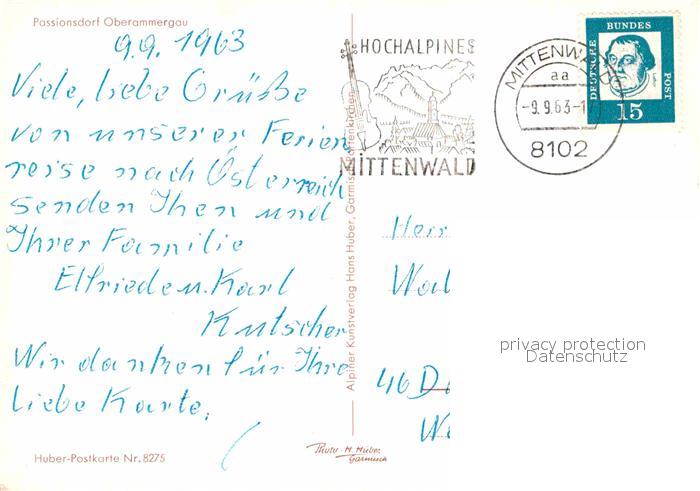 Passionsdorf Oberammergau
9.9. 1963
Viele, liebe Grüße
von unserer Ferien
reise nach Österreich
senden Ihen und
Ihrer Familie
Elfriede u. Karl
Kutscher
Wir danken für Ihre
liebe Karte.
Huber-Postkarte Nr. 8275
Alpiner Kunstverlag Hans Huber, Garmisch-Partenkirchen
Photo-H. Huber
Garmisch
HOCHALPINES
MITTENWALD
MITTENWALD
aa
-9.9.63-1
8102
DEUTSCHE
BUNDES
POST
15
Herr
Wal
46 D
W
privacy protection
Datenschutz